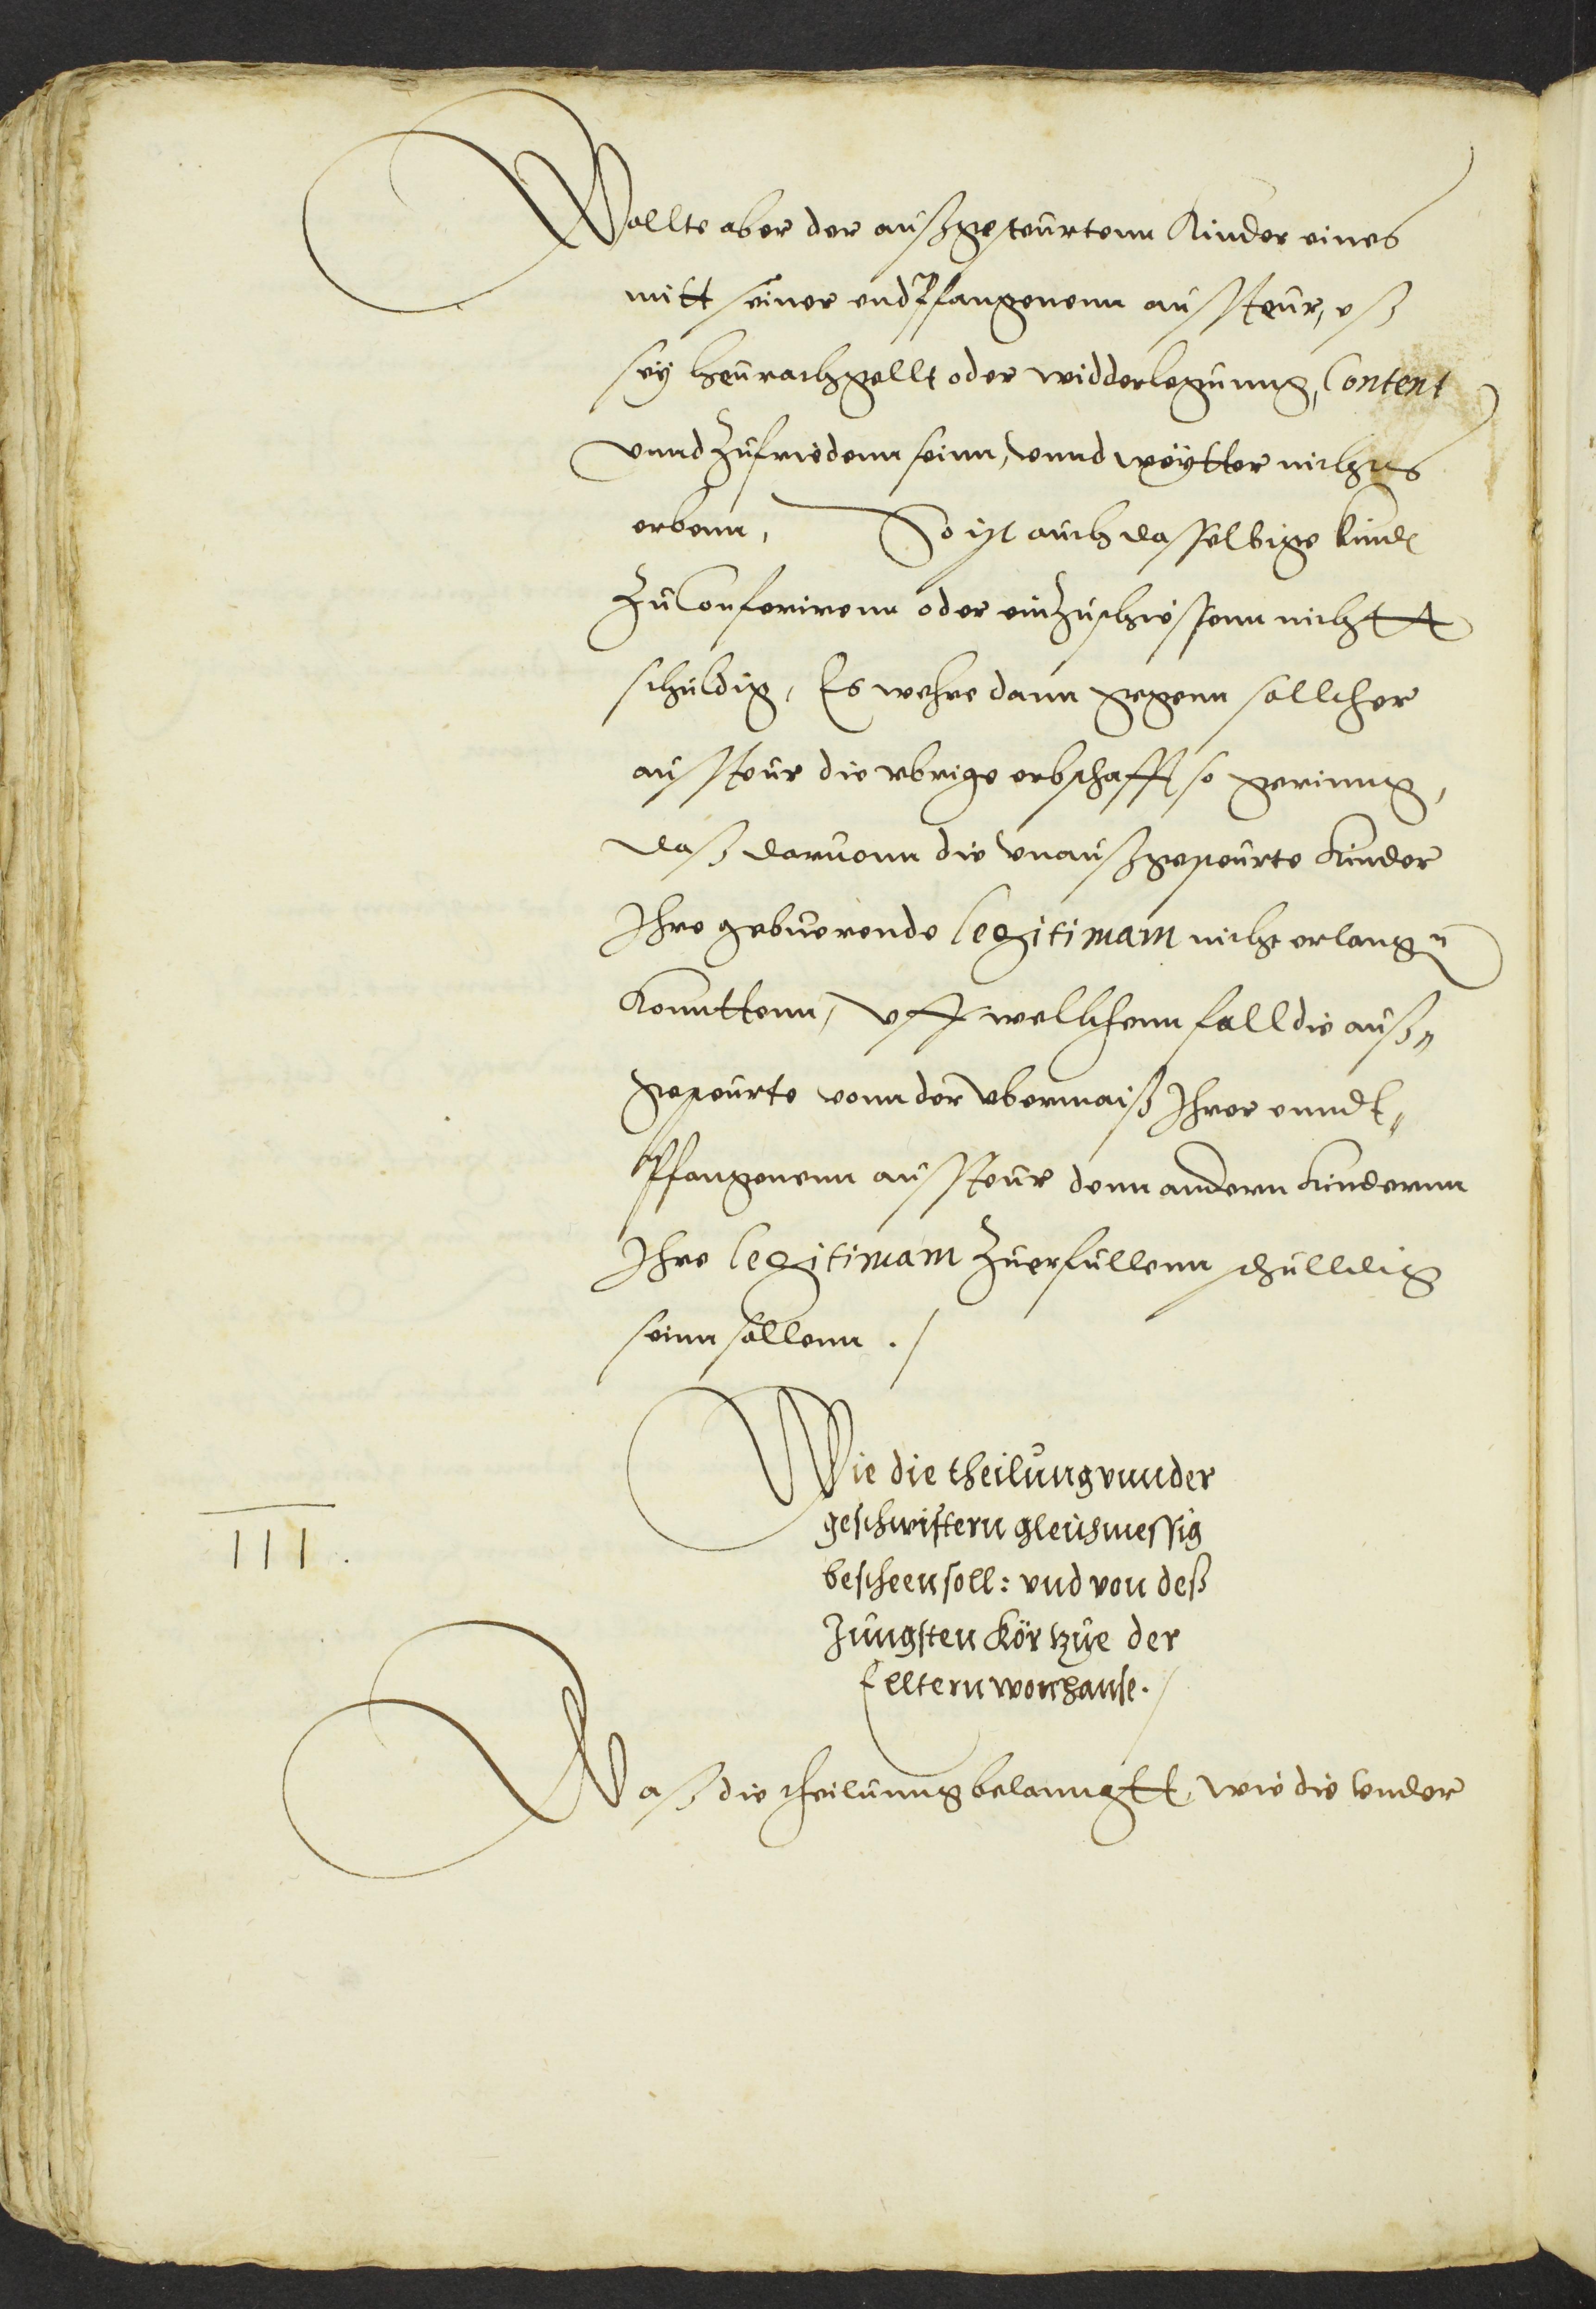 Wollte aber der außgesteurtenn Kinder eines
mitt seiner endtpfangenenn aussteur, eß
sey heurachgellt oder widderlegunng, Content
vnnd zufriedenn seinn, vnnd weytter nichts
erbenn, So ist auch dasselbige kind
zu Conferirenn oder einzuschiessenn nichtt
schuldig, Es wehre dann gegenn sollcher
aussteur die vbrige erbschafft so gerinng,
daß daruonn die vnaußgesteurte Kinder
Ihre gebuerende legitimam nicht erlangen
konnttenn, vff wellchenn fall die auß„
gesteurte vonn der vbermaiß Ihrer enndt„
pfangenenn aussteur denn andern Kindernn
Ihre legitimam zuerfullenn schulldig
seinn sollenn ./
Wie die theilung vnnder
geschwistern gleichmessig
bescheen soll: vnd von deß
Jungsten Kör tzue der
Elltern wonhause ./
III.
Waß die theilunng belanngtt, wie die vnder